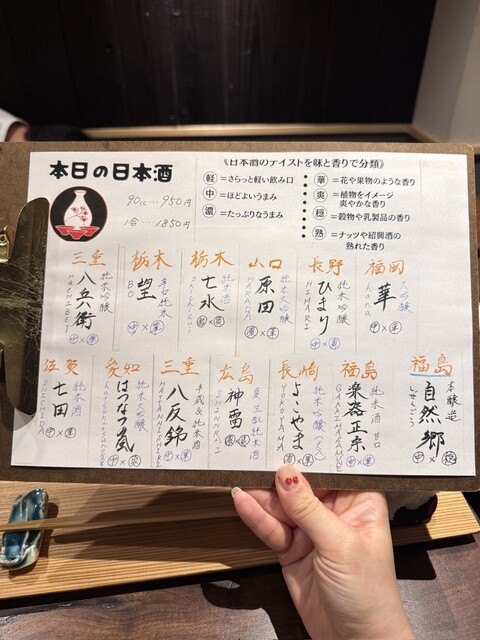 本日の日本酒
90cc…950円
1合…1850円
《日本酒のテイストを味と香りで分類》
軽=さらっと軽い飲み口
中=ほどよいうまみ
濃=たっぷりなうまみ
華=花や果物のような香り
爽=植物をイメージ
爽やかな香り
穏=穀物や乳製品の香り
熟=ナッツや紹興酒の
熟れた香り
三重
純米吟醸
八兵衛
HACHIBEI
栃木
辛口純米
望
BO
中×華
栃木
純米酒
七水
山口
純米大吟醸
原田
HARADA
濃×華
長野
純米吟醸
ひまり
HIMARI
福岡
大吟醸
華
hana
中×華
佐賀
純米酒
七田
SHICHIDA
中×華
愛知
純米大吟醸
三重
純米酒
八反錦
HATTANNISHIKI
中×華
広島
夏生酛純米酒
神雷
SHINRAI
長崎
純米吟醸
よこやま
YOKOYAMA
濃×華
福島
純米酒 甘口
楽器正宗
GAKKIMASAMUNE
中×華
福島
本醸造
自然郷
しぜんごう
中×穏